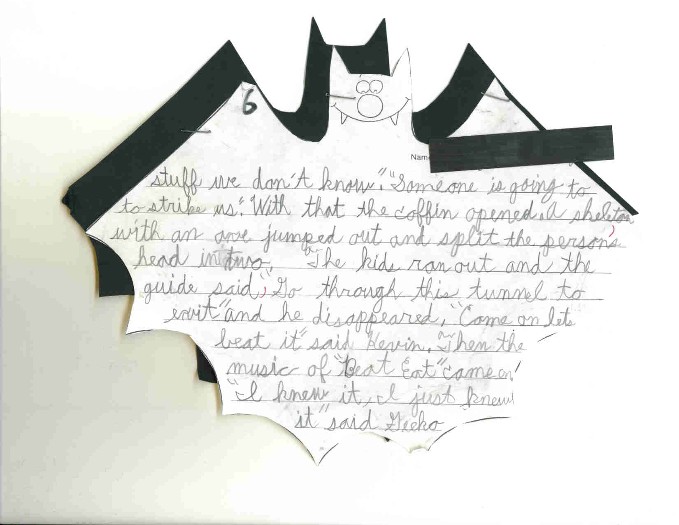 6
Name
stuff we don't know". "Someone is going to
to strike us". With that the coffin opened. A skeleton
with an axe jumped out and split the person's
head in two. The kids ran out and the
guide said, "Go through this tunnel to
exit" and he disappeared, "Come on lets
beat it" said Kevin. Then the
music of "Beat Eat" came on!
"I knew it, I just knew
it" said Geeko